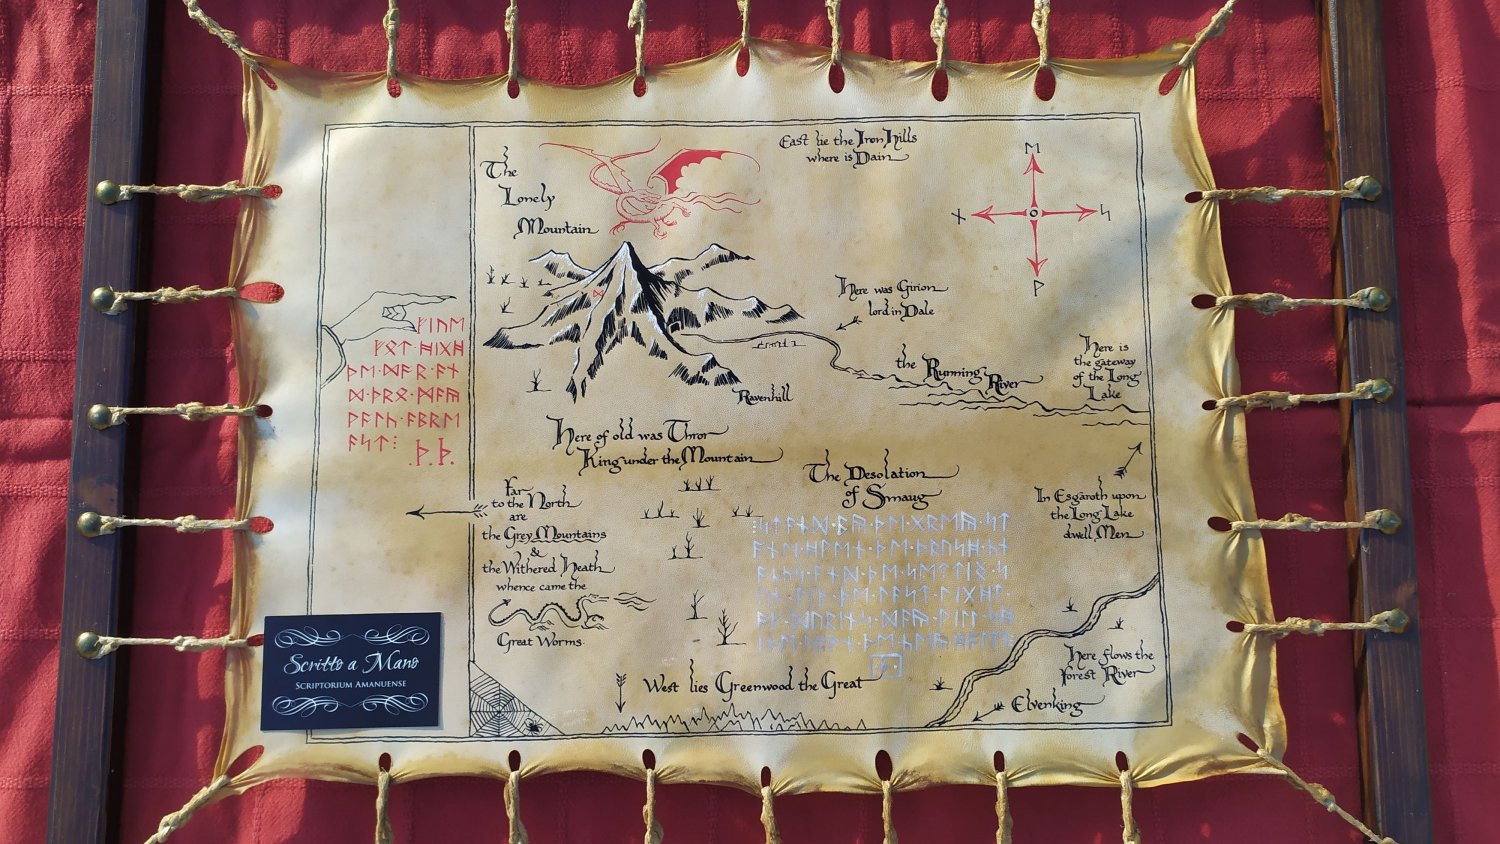 East lie the Iron Hills
where is Dain
ᛖ
ᚾ
ᛋ
ᚹ
The
Lonely
Mountain
Here was Girion
lord in Dale
ᚠᛁᚢᛖ
ᚠᛟᛏ·ᚻᛁᚷᚻ
ᚦᛖ·ᛞᚩᚱ·ᚪᚾ
ᛞ·ᚦᚱᛟ·ᛗᚪᚣ
ᚹᚪᛚᚳ·ᚪᛒᚱᛖ
ᚪᛋᛏ⁝
.ᚦ.ᚦ.
the Running River
Here is
the gateway
of the Long
Lake
Ravenhill
Here of old was Thror
King under the Mountain
The Desolation
of Smaug
Far
to the North
are
the Grey Mountains
&
the Withered Heath
whence came the
Great Worms.
In Esgaroth upon
the Long Lake
dwell Men
Here flows the
forest River
Elvenking
West lies Greenwood the Great
Scritto a Mano
Scriptorium Amanuense